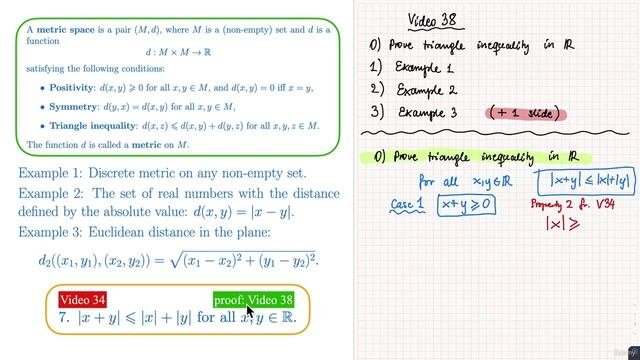 A metric space is a pair (M, d), where M is a (non-empty) set and d is a
function
d : M × M → ℝ
satisfying the following conditions:
• Positivity: d(x, y) ⩾ 0 for all x, y ∈ M, and d(x, y) = 0 iff x = y,
• Symmetry: d(y, x) = d(x, y) for all x, y ∈ M,
• Triangle inequality: d(x, z) ⩽ d(x, y) + d(y, z) for all x, y, z ∈ M.
The function d is called a metric on M.
Example 1: Discrete metric on any non-empty set.
Example 2: The set of real numbers with the distance
defined by the absolute value: d(x, y) = |x − y|.
Example 3: Euclidean distance in the plane:
d₂((x₁, y₁), (x₂, y₂)) = √((x₁ − x₂)² + (y₁ − y₂)²).
Video 34 proof: Video 38
7. |x + y| ⩽ |x| + |y| for all x, y ∈ ℝ.
Video 38
0) Prove triangle inequality in ℝ
1) Example 1
2) Example 2
3) Example 3 (+ 1 slide)
0) Prove triangle inequality in ℝ
for all x,y ∈ ℝ |x+y| ≤ |x|+|y|
Case 1 x+y ⩾ 0 Property 2 fr. V34
|x| ⩾